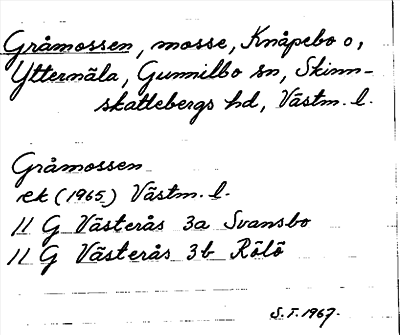 Gråmossen, mosse, Knåpebo o,
Yttermäla, Gunnilbo sn, Skinn-
skattebergs hd, Västm. l.
Gråmossen
ek (1965) Västm. l.
11 G Västerås 3a Svansbo
11 G Västerås 3b Rölö
S.T. 1967.